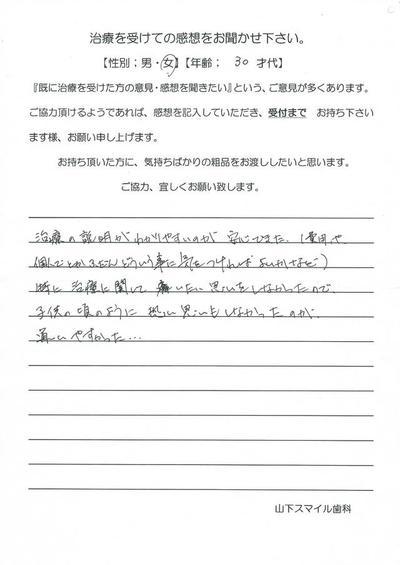 治療を受けての感想をお聞かせ下さい。
【性別:男・女】【年齢: 30 才代】
『既に治療を受けた方の意見・感想を聞きたい』という、ご意見が多くあります。
ご協力頂けるようであれば、感想を記入していただき、受付まで お持ち下さい
ます様、お願い申し上げます。
お持ち頂いた方に、気持ちばかりの粗品をお渡ししたいと思います。
ご協力、宜しくお願い致します。
治療の説明がわかりやすいのが 安心できた。(費用や、
どういう事に気をつければよいかなど)
特に 治療に関して 痛いたい思いをしなかったので、
子供の頃のように 恐い思いもしなかったのが
通いやすかった…
山下スマイル歯科